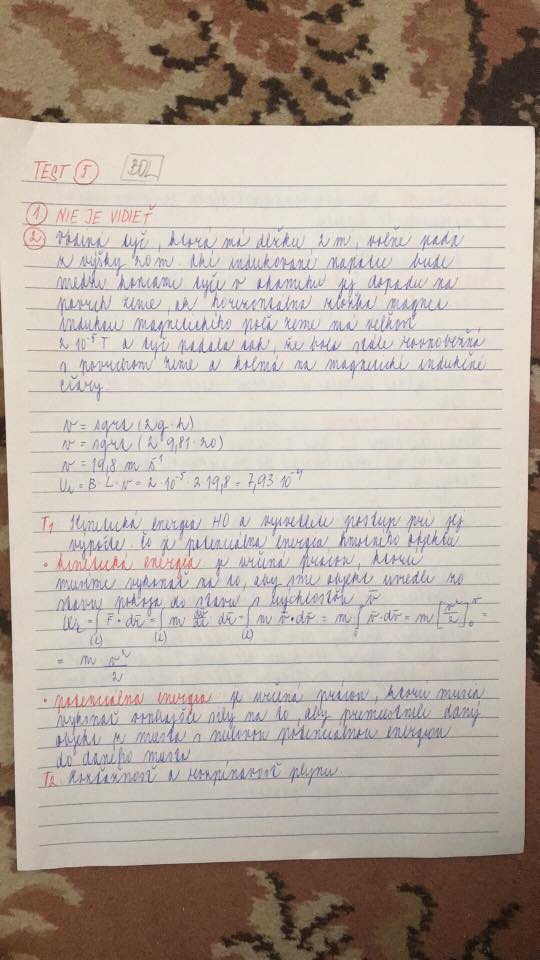 TEST 5 BOL
1 NIE JE VIDIEŤ
2 Vodivá tyč, ktorá má dĺžku 2 m, voľne padá
z výšky 20 m. Aké indukované napätie bude
medzi koncami tyče v okamihu jej dopadu na
povrch zeme, ak horizontálna zložka magnet
indukcie magnetického poľa zeme má veľkosť
2 10⁻⁵ T a tyč padala tak, že bola stále rovnobežná
s povrchom zeme a kolmá na magnetické indukčné
čiary.
v = sqrt (2g·h)
v = sqrt (2·9,81·20)
v = 19,8 m s⁻¹
Ui = B·L·v = 2·10⁻⁵·2·19,8 = 7,93·10⁻⁴
T1 Kinetická energia HO a vysvetlite postup pri jej
výpočte. Čo je potenciálna energia hmotného objektu
• kinetická energia je určená prácou, ktorú
musíme vykonať na to, aby sme objekt uviedli zo
stavu pokoja do stavu s rýchlosťou v̄
= ∫(L) F̄·dr̄ = ∫(L) m dv̄/dt dr̄ = ∫(L) m·v̄·dv̄ = m ∫₀ v̄·dv̄ = m [v²/2]₀ᵛ =
= m v²/2
• potenciálna energia je určená prácou, ktorú musia
vykonať vonkajšie sily na to, aby premiestnili daný
objekt z miesta s nulovou potenciálnou energiou
do daného miesta
T2 Rozťažnosť a rozpínavosť plynu